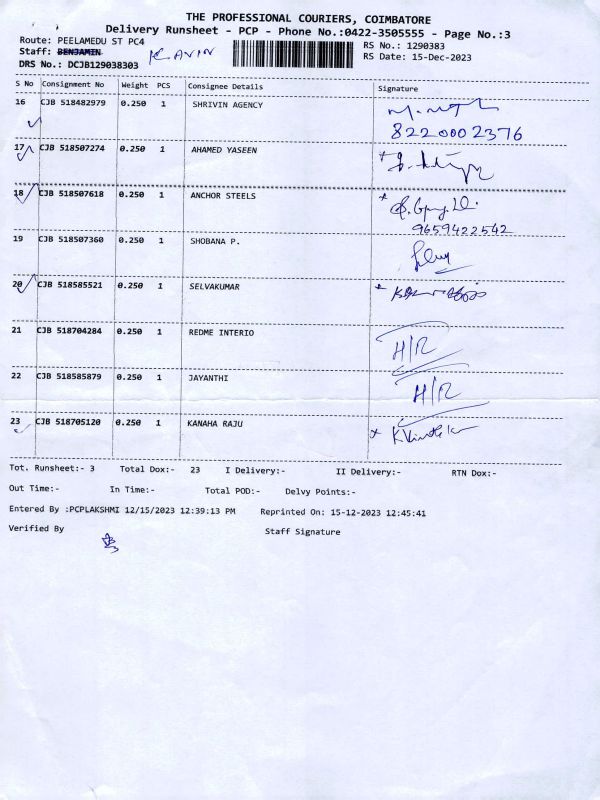 THE PROFESSIONAL COURIERS, COIMBATORE
Delivery Runsheet - PCP - Phone No.:0422-3505555 - Page No.:3
Route: PEELAMEDU ST PC4
RS No.: 1290383
Staff: BENJAMIN KAVIN
RS Date: 15-Dec-2023
DRS No.: DCJB129038303
S No Consignment No Weight PCS Consignee Details Signature
16 CJB 518482979 0.250 1 SHRIVIN AGENCY
8220002376
17 CJB 518507274 0.250 1 AHAMED YASEEN
18 CJB 518507618 0.250 1 ANCHOR STEELS
9659422542
19 CJB 518507360 0.250 1 SHOBANA P.
20 CJB 518585521 0.250 1 SELVAKUMAR
21 CJB 518704284 0.250 1 REDME INTERIO H/R
22 CJB 518585879 0.250 1 JAYANTHI H/R
23 CJB 518705120 0.250 1 KANAHA RAJU
Tot. Runsheet:- 3 Total Dox:- 23 I Delivery:- II Delivery:- RTN Dox:-
Out Time:- In Time:- Total POD:- Delvy Points:-
Entered By :PCPLAKSHMI 12/15/2023 12:39:13 PM Reprinted On: 15-12-2023 12:45:41
Verified By Staff Signature